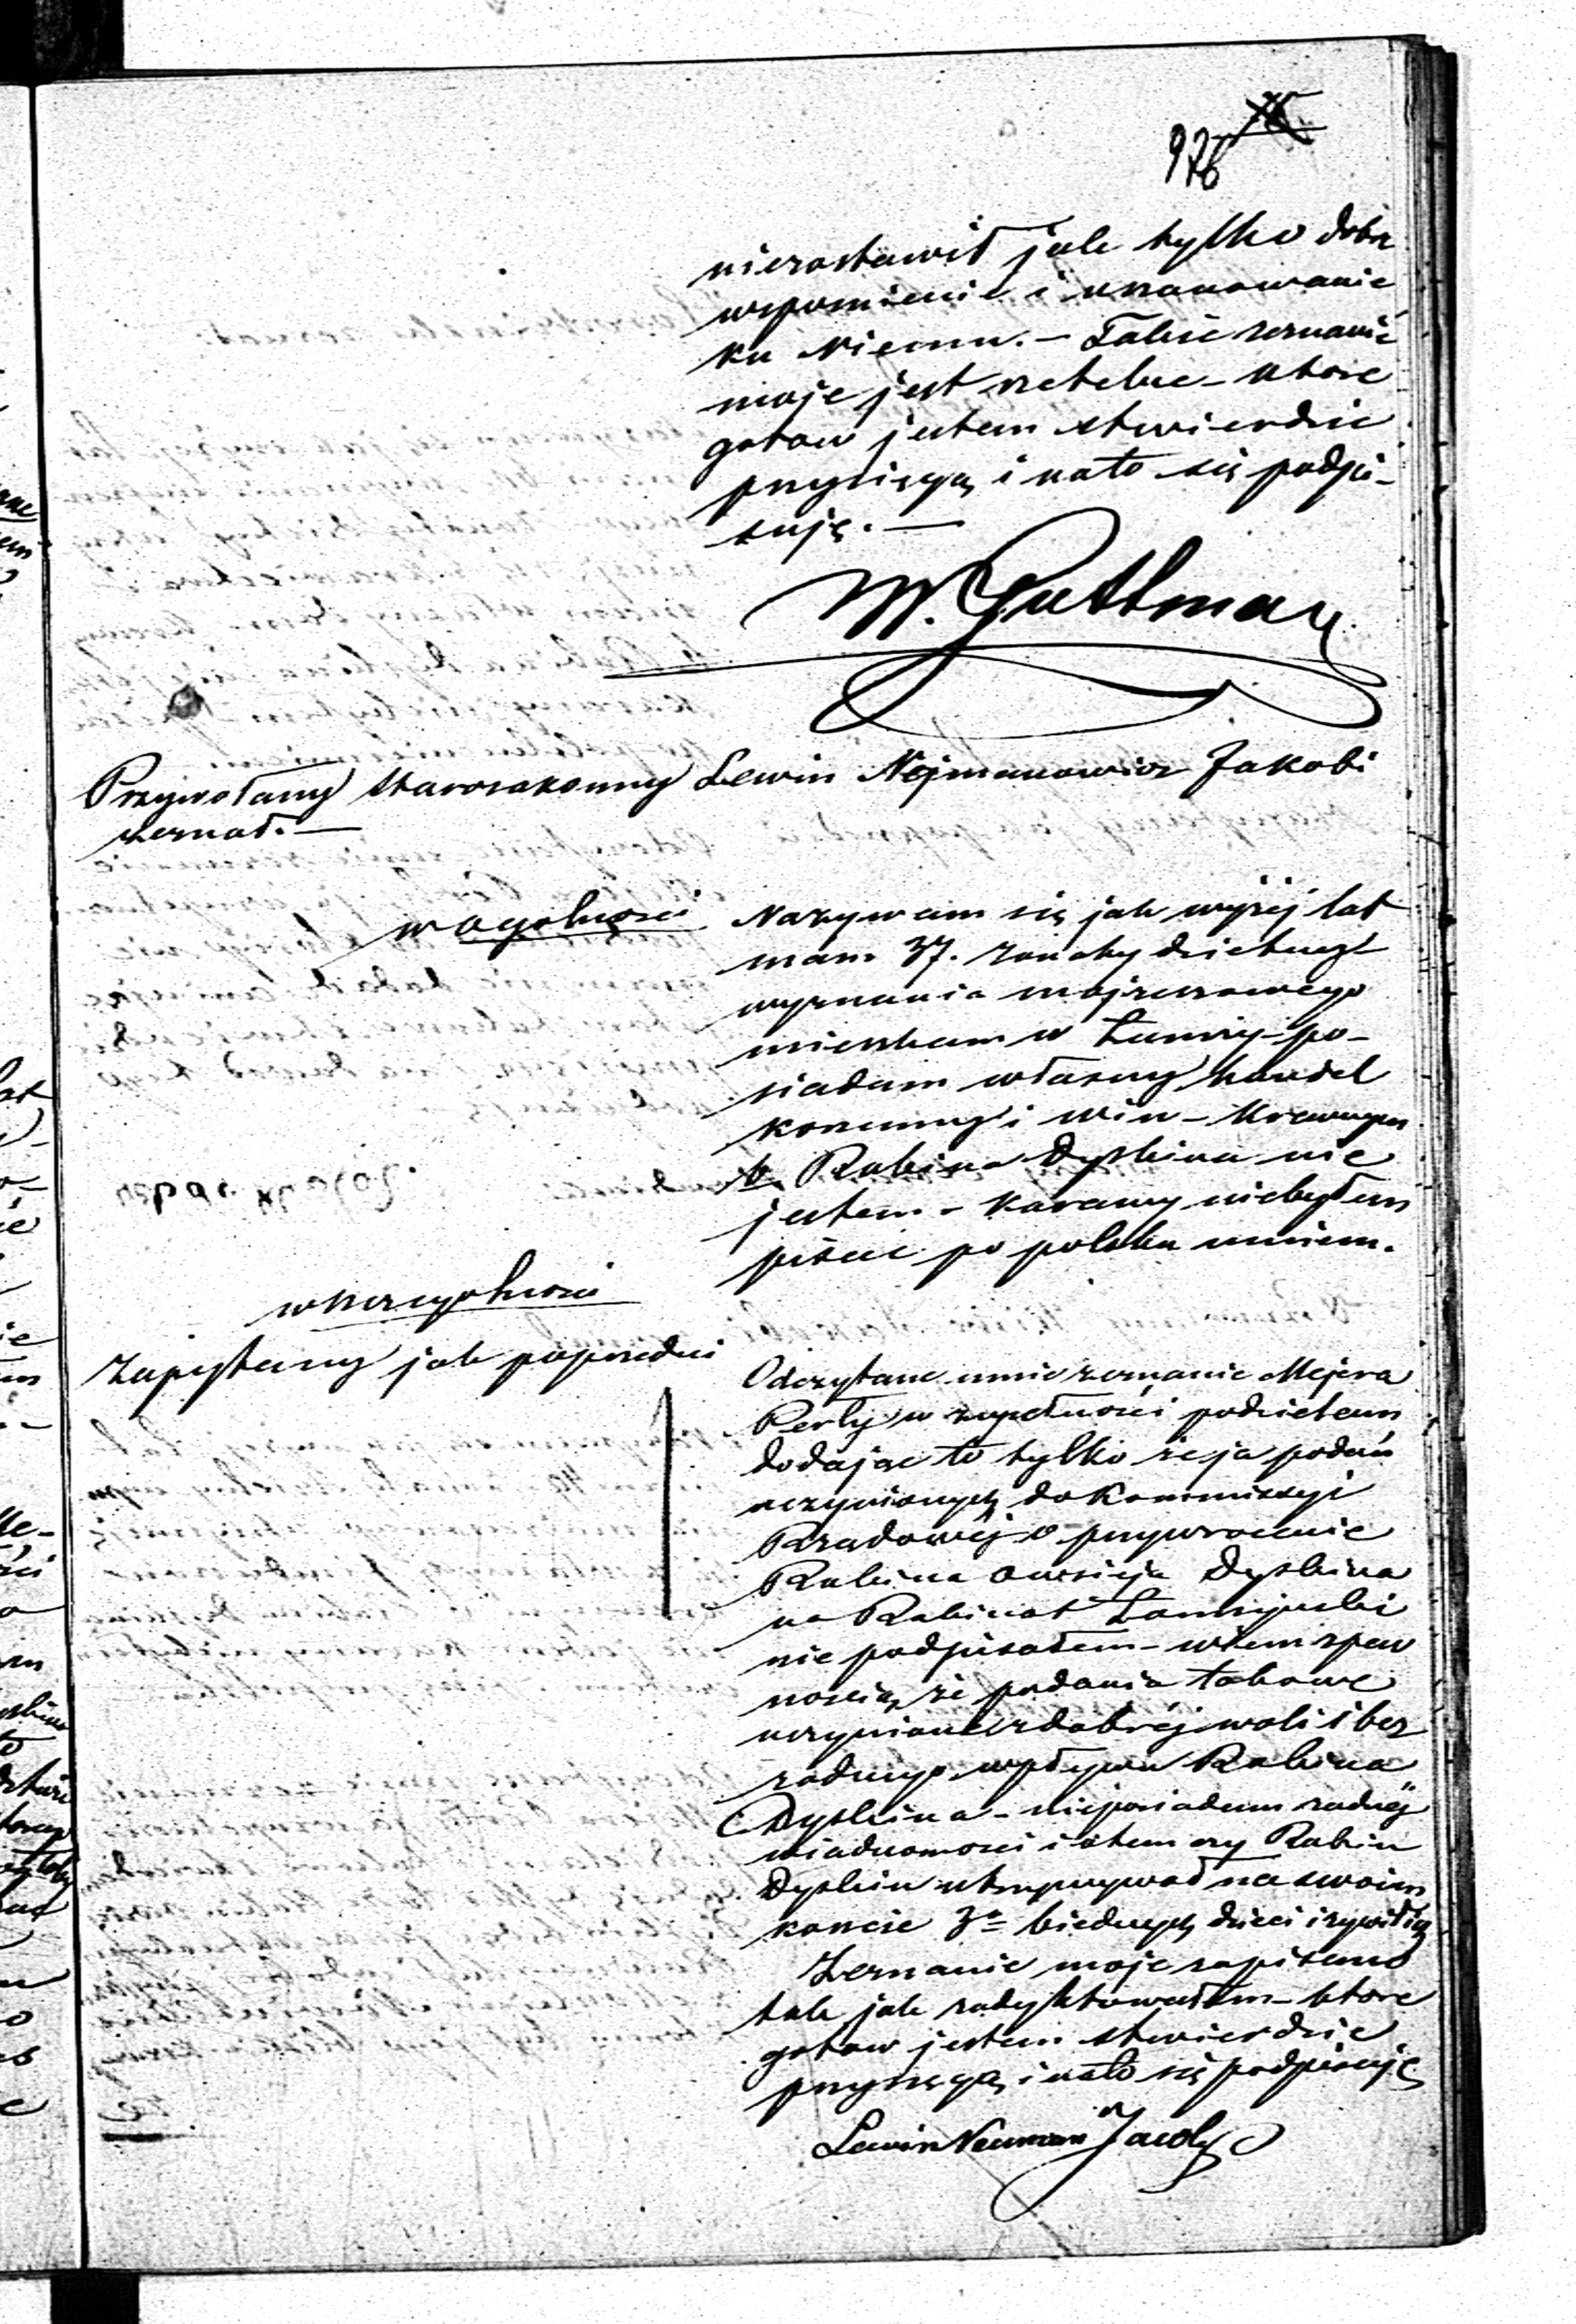 976
nierostawił jak tylko dobre
wspomienie i uszanowanie
ku Niemu. — Takie zeznanie
moje jest rzetelne – które
gotow jestem stwierdzić
przysięgą i nato się podpi-
suję. —
M. Guttman
Przywołany starozakonny Lewin Nejmanowicz Jakobi
zeznał. —
w ogolności
Nazywam się jak wyżej lat
mam 37. żonaty dzietny
wyznania mojżeszowego
mieszkam w Łomży – po-
siadam własny handel
korzenny i win – Krewnym
b. Rabina Dyskina nie
jestem – Karany niebyłem
pisać po polsku umiem.
w szczegolności
Zapytany jak poprzedni
Odczytane mnie zeznanie Mejera
Perły w zupełności podzielam
dodając to tylko że ja podań
uczynionych do Kommissyi
Rządowéj o przywrocenie
Rabina Owsieja Dyskina
na Rabinat Łomżyński
nie podpisałem – wiem z pew
nością że podania takowe
uczynione z dobréj woli i bez
żadnego wpływu Rabina
Dyskina – nieposiadam żadnéj
wiadomości i otem czy Rabin
Dyskin utrzymywał na swoim
koncie 3e biednych dzieci i żywił ich
Zeznanie moje zapisano
tak jak zadyktowałem – które
gotow jestem stwierdzić
przysięgą i nato się podpisuję
Lewin Neuman Jacoby